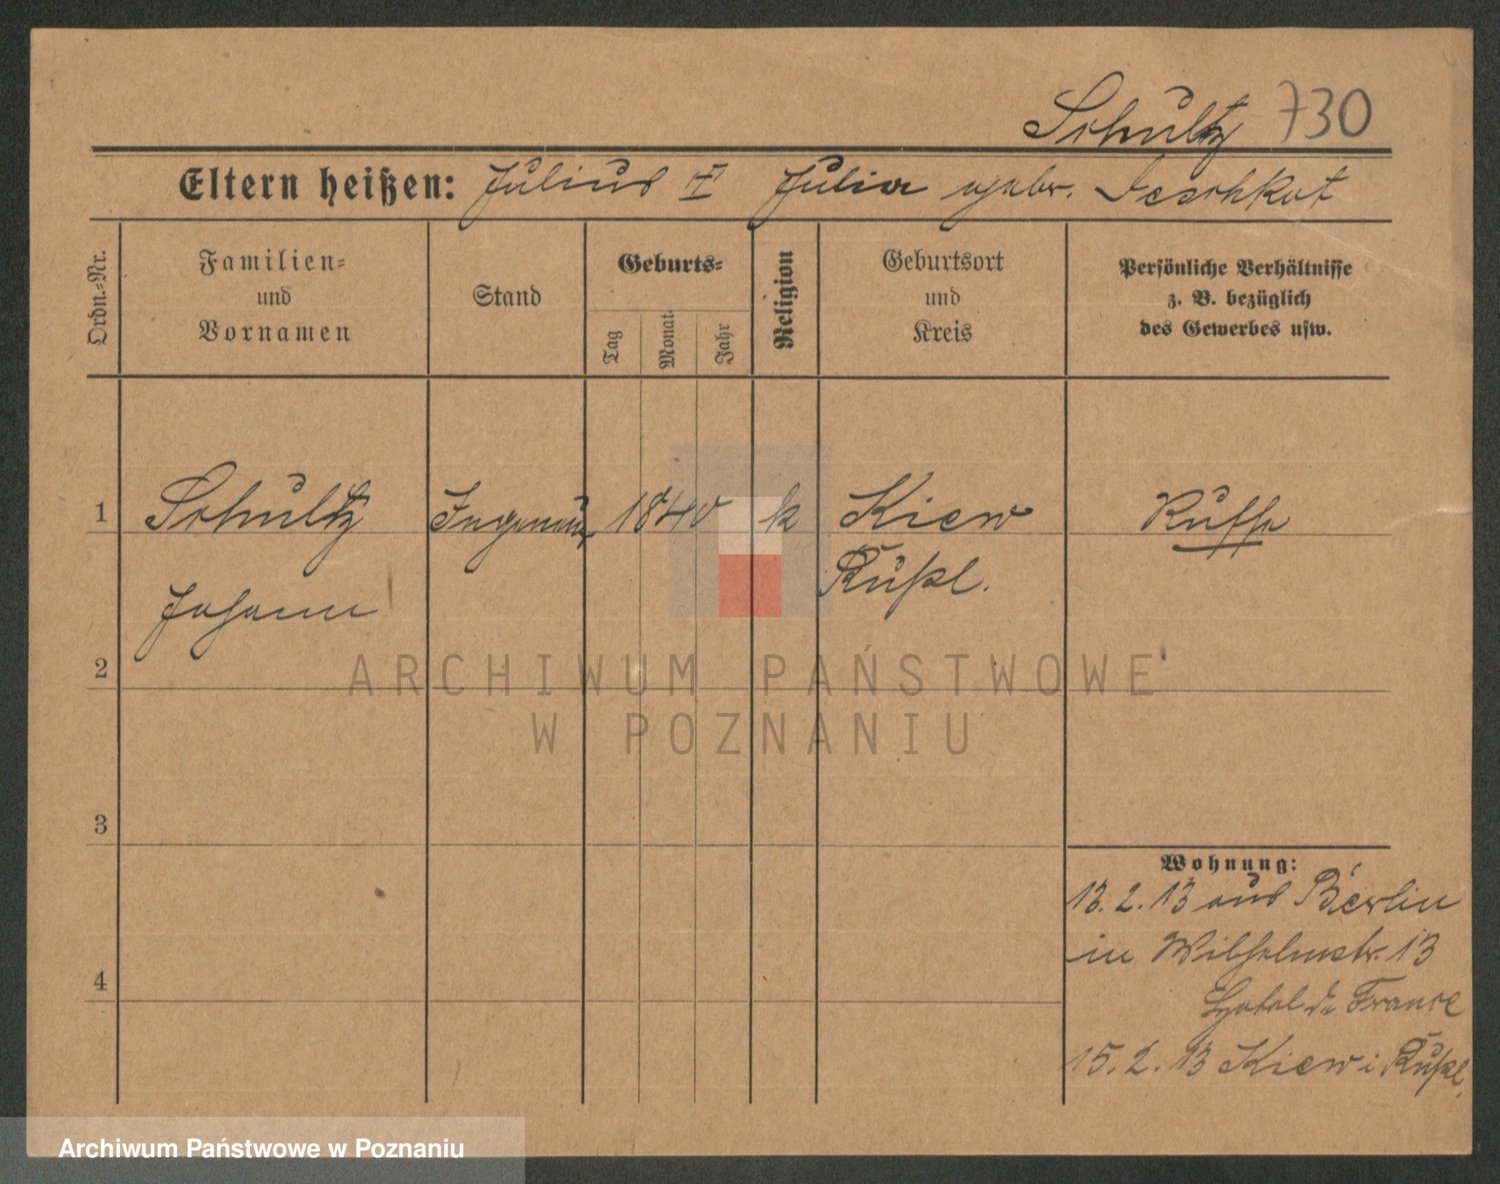 Schultz 730
Eltern heißen: Julius † Julia gebr. Jeschkat
Ordn.-Nr.
Familien-
und
Vornamen
Stand
Geburts-
Tag
Monat
Jahr
Religion
Geburtsort
und
Kreis
Persönliche Verhältnisse
z. B. bezüglich
des Gewerbes usw.
1 Schultz Ingenieur 1840 k Kiew Russe
Rußl.
Johann
2
ARCHIWUM PAŃSTWOWE
W POZNANIU
3
Wohnung:
13.2.13 aus Berlin
in Wilhelmstr. 13
Hotel de France
4
15.2.13 Kiew i Rußl.
Archiwum Państwowe w Poznaniu